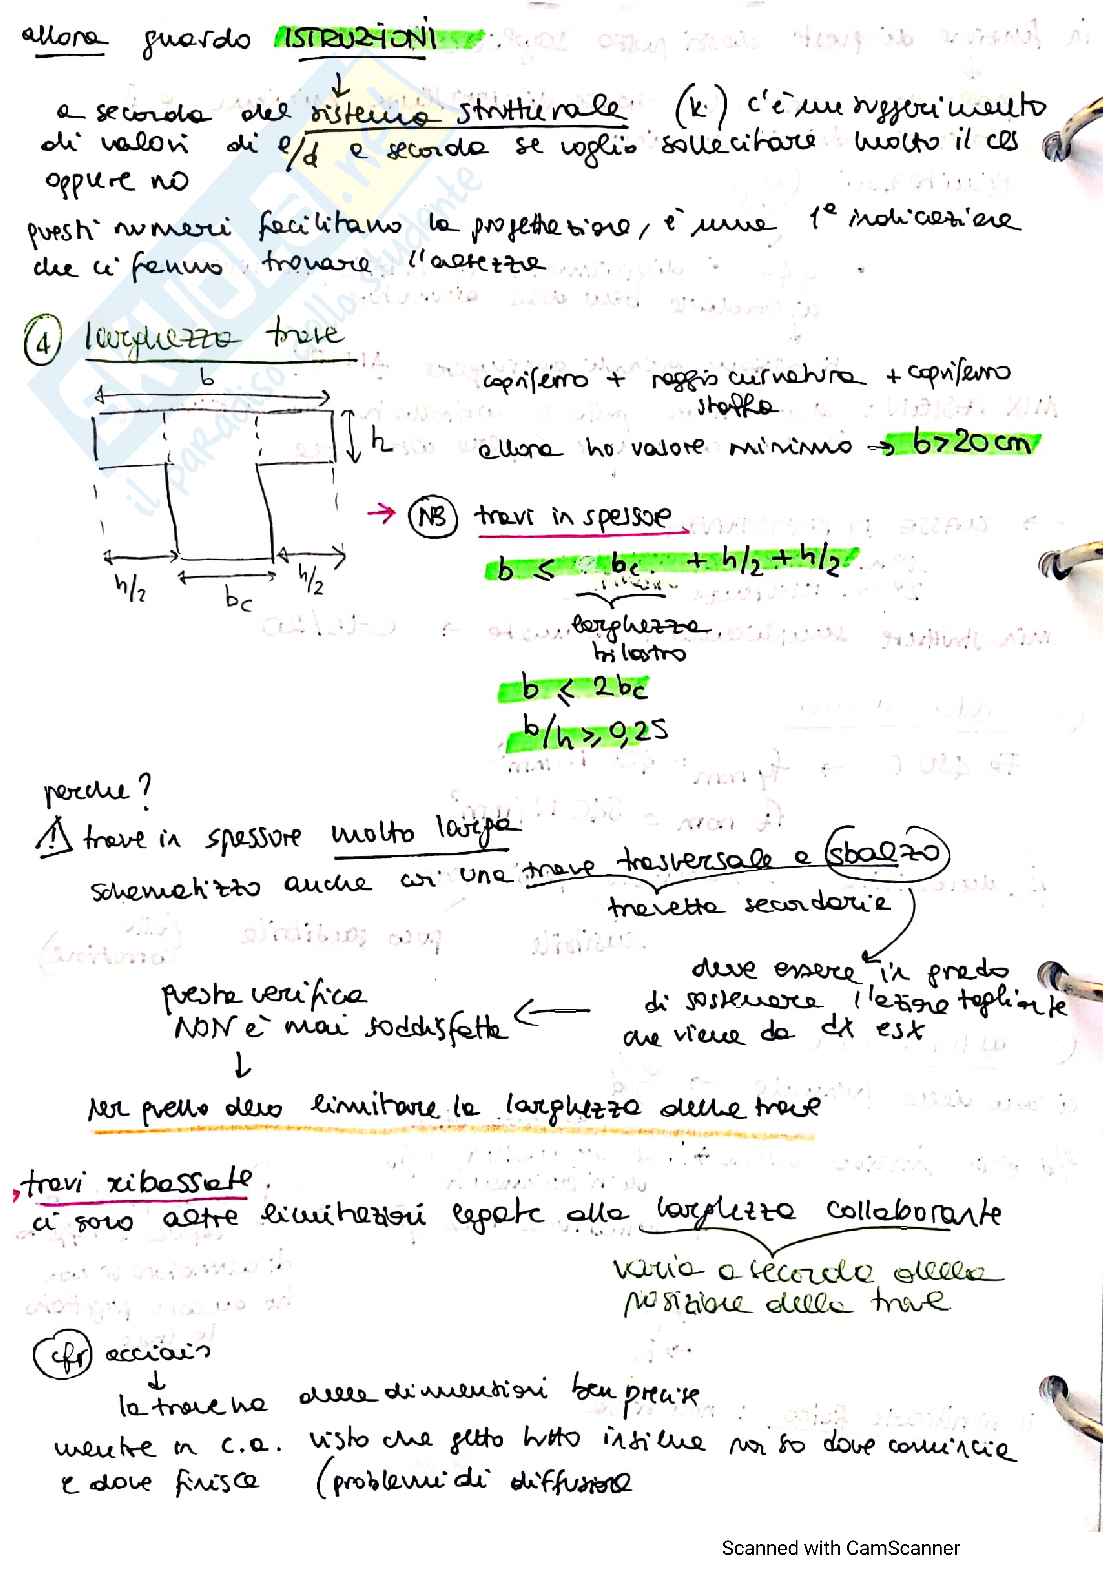 allora guardo ISTRUZIONI
a seconda del sistema strutturale (k) c'è un suggerimento
di valori di l/d a seconda se voglio sollecitare molto il cls
oppure no
questi numeri facilitano la progettazione, è una 1ª indicazione
che ci fanno trovare l'altezza
4 larghezza trave
b
h
h/2
bc
h/2
copriferro + raggio curvatura + copriferro
staffa
allora ho valore minimo → b>20cm
→ NB travi in spessore
b ≤ bc + h/2 + h/2
larghezza
pilastro
b ≤ 2bc
b/h ≥ 0,25
perche?
trave in spessore molto larga
schematizzo anche con una trave trasversale a sbalzo
travetta secondaria
deve essere in grado
di sostenere l'azione tagliante
che viene da dx e sx
questa verifica
NON è mai soddisfatta
per quello devo limitare la larghezza della trave
travi ribassate
ci sono altre limitazioni legate alla larghezza collaborante
varia a seconda della
posizione della trave
cfr acciaio
la trave ha delle dimensioni ben precise
mentre in c.a. visto che getto tutto insieme non so dove comincia
e dove finisce (problemi di diffusione
SKUOLA.net
il paradiso dello studente
Scanned with CamScanner